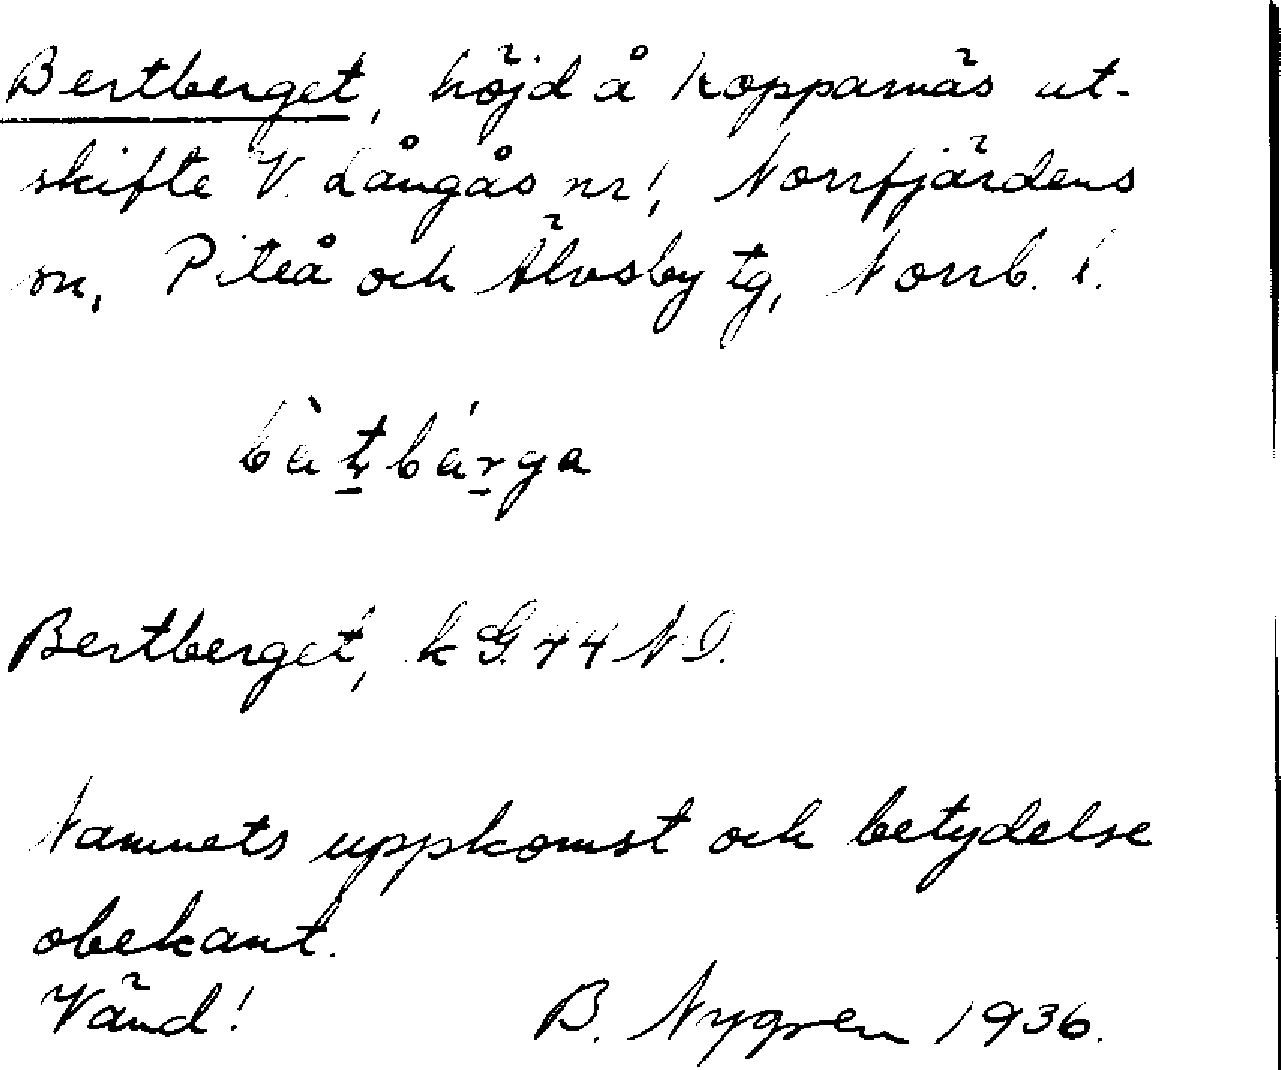 Bertberget, höjd å Kopparnäs ut-
skifte V. Långås nr 1, Norrfjärdens
sn, Piteå och Älvsby tg, Norrb. l.
bàt̠bárga
Bertberget, k G. 44 N O.
Namnets uppkomst och betydelse
obekant.
Vänd! B. Nygren 1936.